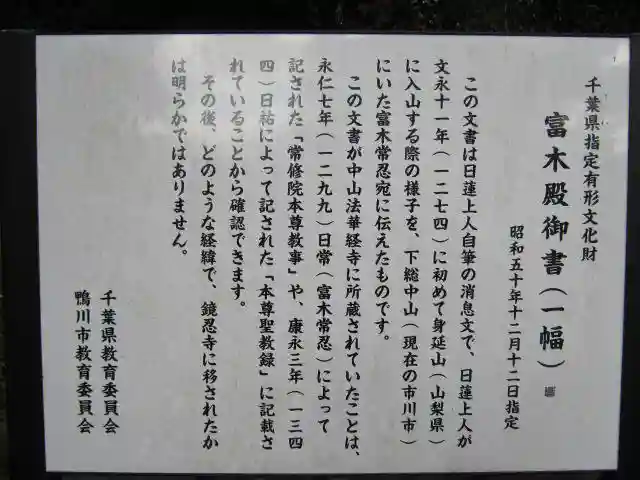 千葉県指定有形文化財
富木殿御書（一幅）
昭和五十年十二月十二日指定
この文書は日蓮上人自筆の消息文で、日蓮上人が
文永十一年（一二七四）に初めて身延山（山梨県）
に入山する際の様子を、下総中山（現在の市川市）
にいた富木常忍宛に伝えたものです。
この文書が中山法華経寺に所蔵されていたことは、
永仁七年（一二九九）日常（富木常忍）によって
記された「常修院本尊教事」や、康永三年（一三四
四）日祐によって記された「本尊聖教録」に記載さ
れていることから確認できます。
その後、どのような経緯で、鏡忍寺に移されたか
は明らかではありません。
千葉県教育委員会
鴨川市教育委員会